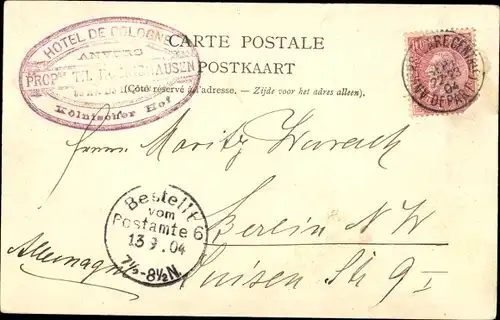 HOTEL DE COLOGNE
ANVERS
PROPRE
Kölnischer Hof
CARTE POSTALE
POSTKAART
(Côté réservé à l'adresse. – Zijde voor het adres alleen).
10
04
DEPART
Herrn Moritz
Bestellt
vom
Postamte 6
13 9 . 04
7½-8½N.
Berlin N W
Allemagne
Luisen Str 9 I